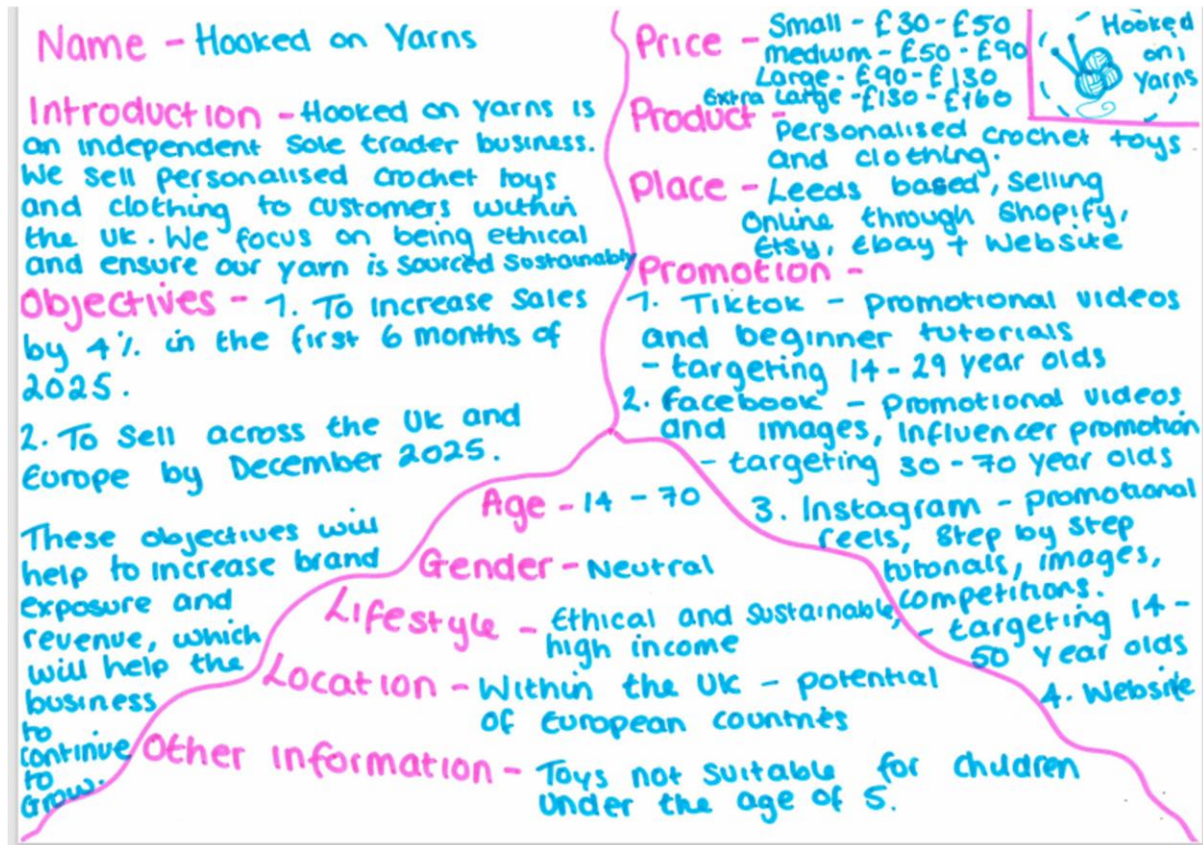 Name - Hooked on Yarns
Introduction - Hooked on yarns is
an independent sole trader business.
We sell personalised crochet toys
and clothing to customers within
the UK. We focus on being ethical
and ensure our yarn is sourced sustainably
Objectives - 1. To increase sales
by 4% in the first 6 months of
2025.
2. To sell across the UK and
Europe by December 2025.
These objectives will
help to increase brand
exposure and
revenue, which
will help the
business
to
continue
to
grow.
Price - Small - £30 - £50
medium - £50 - £90
Large - £90 - £130
Extra Large - £130 - £160
Hooked
on
Yarns
Product -
Personalised crochet toys
and clothing.
Place - Leeds based, selling
online through Shopify,
Etsy, Ebay + Website
Promotion -
1. Tiktok - promotional videos
and beginner tutorials
- targeting 14 - 29 year olds
2. Facebook - Promotional videos
and images, influencer promotion
- targeting 30 - 70 year olds
3. Instagram - promotional
reels, step by step
tutorials, images,
competitions.
- targeting 14 -
50 year olds
4. Website
Age - 14 - 70
Gender - Neutral
Lifestyle - Ethical and sustainable,
high income
Location - Within the UK - potential
of European countries
Other information - Toys not suitable for children
under the age of 5.